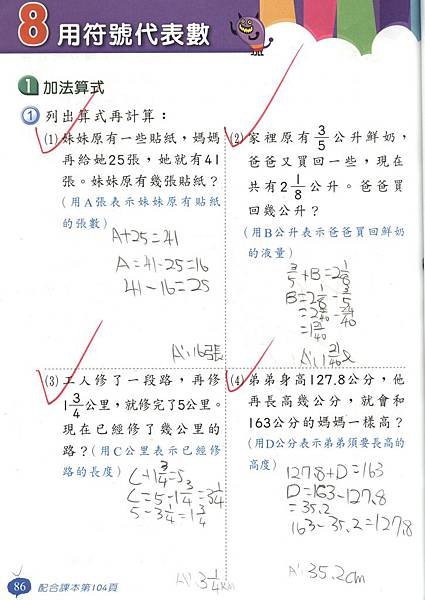 8 用符號代表數
1 加法算式
① 列出算式再計算：
(1) 妹妹原有一些貼紙，媽媽
再給她25張，她就有41
張。妹妹原有幾張貼紙？
(用A張表示妹妹原有貼紙
的張數)
A+25=41
A=41-25=16
41-16=25
A:16張
(2) 家裡原有3/5公升鮮奶，
爸爸又買回一些，現在
共有2 1/8公升。爸爸買
回幾公升？
(用B公升表示爸爸買回鮮奶
的液量)
3/5+B=2 1/8
B=2 1/8-3/5
=2 5/40-24/40
=1 21/40
A:1 21/40 l
(3) 工人修了一段路，再修
1 3/4公里，就修完了5公里。
現在已經修了幾公里的
路？(用C公里表示已經修
路的長度)
C+1 3/4=5
C=5-1 3/4=3 1/4
5-3 1/4=1 3/4
A:3 1/4 km
(4) 弟弟身高127.8公分，他
再長高幾公分，就會和
163公分的媽媽一樣高？
(用D公分表示弟弟須要長高的
高度)
127.8+D=163
D=163-127.8
=35.2
163-35.2=127.8
A:35.2cm
86 配合課本第104頁